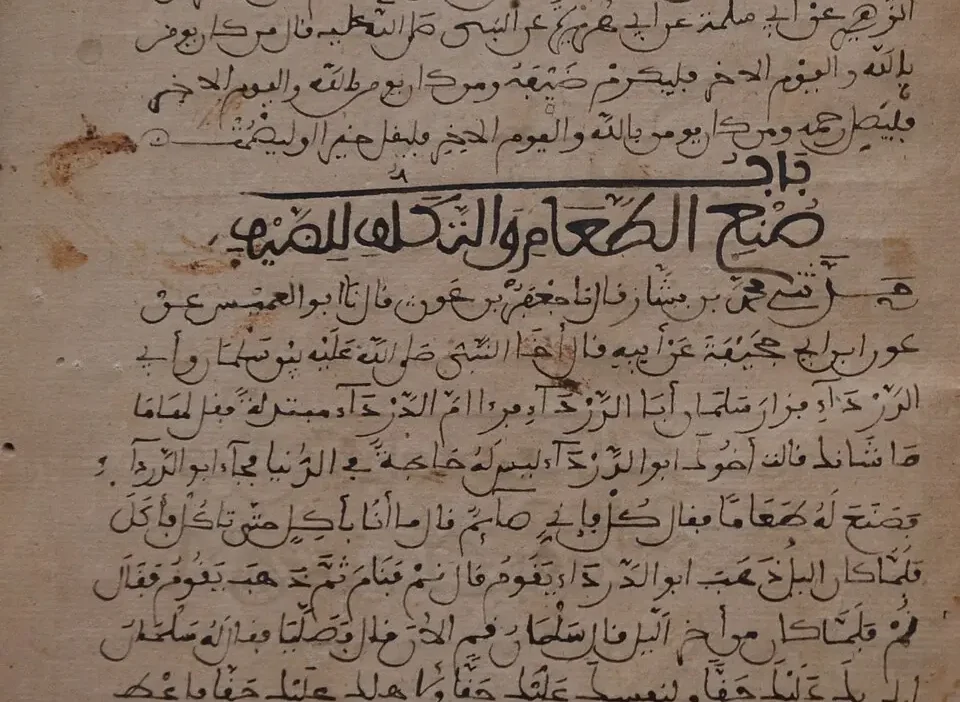 الزهري عن أبي سلمة عن أبي هريرة عن النبي صلى الله عليه قال من كان يومن
بالله واليوم الاخر فليكرم ضيفه ومن كان يومن بالله واليوم الاخر
فليصل رحمه ومن كان يومن بالله واليوم الاخر فليقل خيرا او ليصمت
باب
صُنْعِ الطَّعَامِ وَالتَّكَلُّفِ لِلضَّيْفِ
حدثني محمد بن بشار قال نا جعفر بن عون قال نا ابو العميس عن
عون ابن ابي جحيفة عن أبيه قال أخا النبي صلى الله عليه بين سلمان وأبي
الدرداء فزار سلمان أبا الدرداء فرءا ام الدرداء مبتذلة فقل لها ما
ما شانك قالت أخوك ابو الدرداء ليس له حاجة في الدنيا فجاء ابو الدرداء
فصنع له طعاما فقال كُلْ فإني صائم قال ما أنا بأكل حتى تاكل فأكل
فلما كان اليل ذهب ابو الدرداء يقوم قال نم فنام ثم ذهب يقوم فقال
نم فلما كان من أخر اليل قال سلمان قم الان قال فصليا فقال له سلمان
لربك عليك حقا ولنفسك عليك حقا ولاهلك عليك حقا فاعط